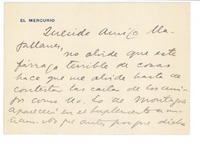 EL MERCURIO
Querido Amigo Ma-
gallanes,
no olvide que este
fárrago terrible de cosas
hace que me olvide hasta de
contestar las cartas de los ami-
gos como Ud. Lo de Montalvo
aparecerá en el suplemento
que dicho